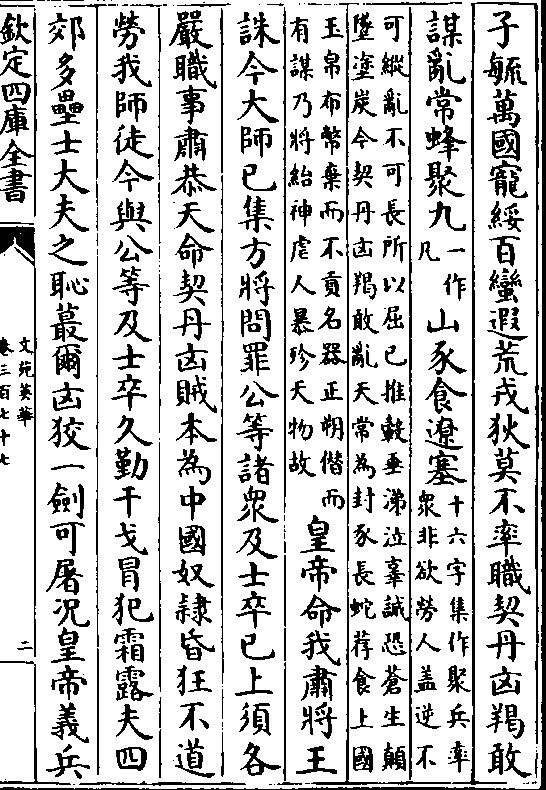 子毓萬國寵綏百蠻遐荒戎狄莫不率職契丹凶羯敢
謀亂常蜂聚九一作凡山豕食遼塞十六字集作聚兵率
衆非欲勞人盖逆不
可縱亂不可長所以屈已推轂垂涕泣辜誠恐蒼生顛
墜塗炭今契丹凶羯敢亂天常為封豕長蛇荐食上國
玉帛布幣棄而不貢名器正朔僣而
有謀乃將紿神虐人暴殄天物故皇帝命我肅將王
誅今大師已集方將問罪公等諸衆及士卒已上須各
嚴職事肅恭天命契丹凶賊本為中國奴隷昏狂不道
勞我師徒今與公等及士卒久勤干戈冒犯霜露夫四
郊多壘士大夫之恥蕞爾凶狡一劍可屠況皇帝義兵
欽定四庫全書
文苑英華
卷三百七十七
二